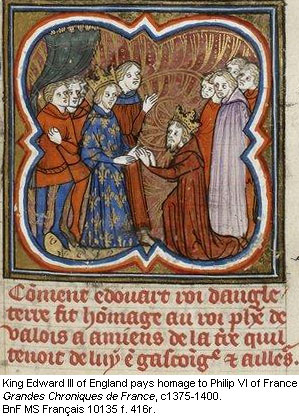 Coment edouart roi dangle
terre fit homage au roi phe de
valois a amiens de la t̃re quil
tenoit de luy en gascoig̃e ⁊ ailleˢ.
King Edward III of England pays homage to Philip VI of France
Grandes Chroniques de France, c1375-1400.
BnF MS Français 10135 f. 416r.